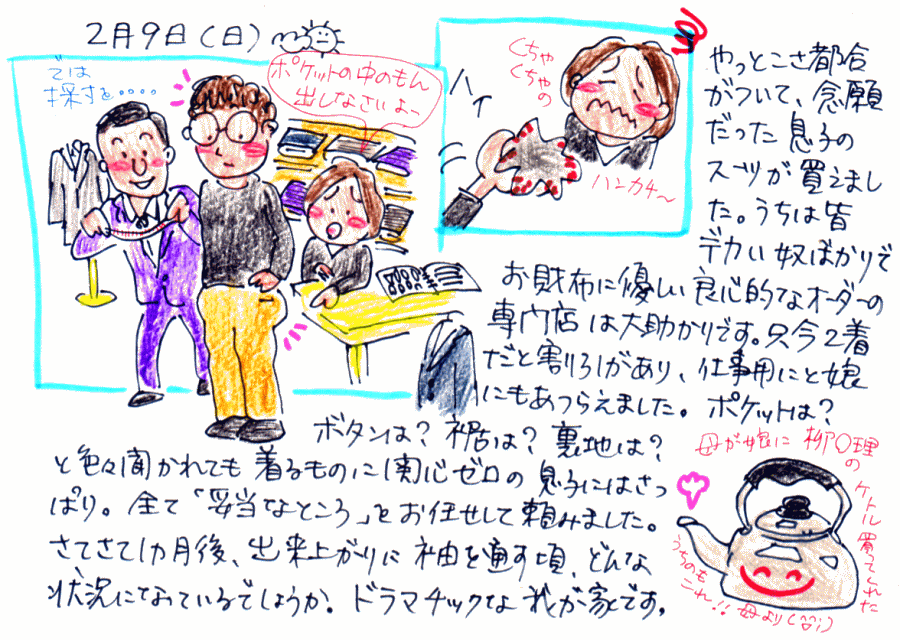 2月9日(日)
では
採寸を・・・・
ポケットの中のもん
出しなさいよ〜
ハイ
くちゃ
くちゃの
ハンカチ〜
やっとこさ都合
がついて、念願
だった息子の
スーツが買えまし
た。うちは皆
デカい奴ばかりで
お財布に優しい良心的なオーダーの
専門店は大助かりです。只今2着
だと割引があり、仕事用にと娘
にもあつらえました。ポケットは?
ボタンは?裾は?裏地は?
と色々聞かれても着るものに関心ゼロの息子にはさっ
ぱり。全て「妥当なところ」とお任せして頼みました。
さてさて1カ月後、出来上がりに袖を通す頃、どんな
状況になっているでしょうか。ドラマチックな我が家です。
母が娘に柳〇理の
ケトル買てくれた
うちのも
これ!!母より(^^;)